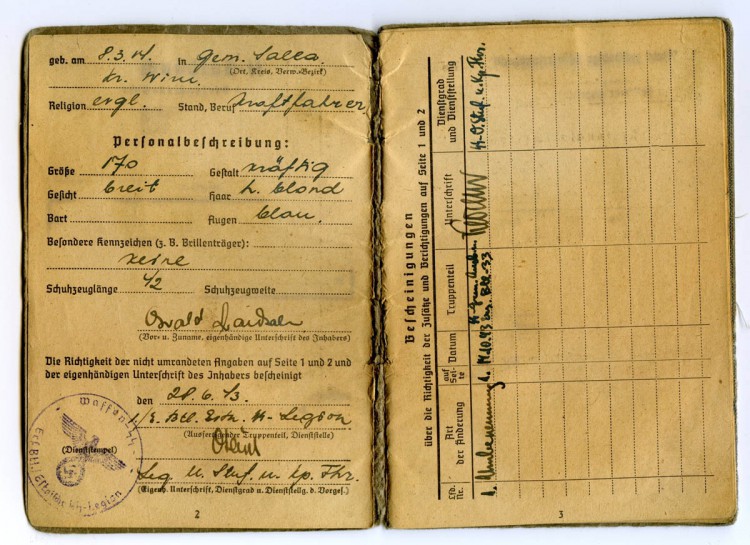 geb. am 8.3.14. in Gem. Salla
(Ort, Kreis, Verw.-Bezirk)
Kr. Wiru
Religion evgl. Stand, Beruf Kraftfahrer
Personalbeschreibung:
Größe 170 Gestalt kräftig
Gesicht breit Haar h. blond
Bart Augen blau.
Besondere Kennzeichen (z. B. Brillenträger):
keine
Schuhzeuglänge 42 Schuhzeugweite
Osvald
(Vor- u. Zuname, eigenhändige Unterschrift des Inhabers)
Die Richtigkeit der nicht umrandeten Angaben auf Seite 1 und 2 und
der eigenhändigen Unterschrift des Inhabers bescheinigt
den 28.6.43.
1./E. Btl. Estn. SS-Legion
(Ausfertigender Truppenteil, Dienststelle)
(Dienststempel)
Waffen-SS
Leg. U. Stuf. u. Kp. Fhr.
(Eigenh. Unterschrift, Dienstgrad u. Dienststellg. d. Vorges.)
2
Bescheinigungen
über die Richtigkeit der Zusätze und Berichtigungen auf Seite 1 und 2
Lfd. Nr.
Art der Änderung
auf Seite
Datum
Truppenteil
Unterschrift
Dienstgrad und Dienststellung
1. Umbenennung 1. 14.10.43 Btl. 33 SS-O.Stuf. u. Kp. Fhr.
3